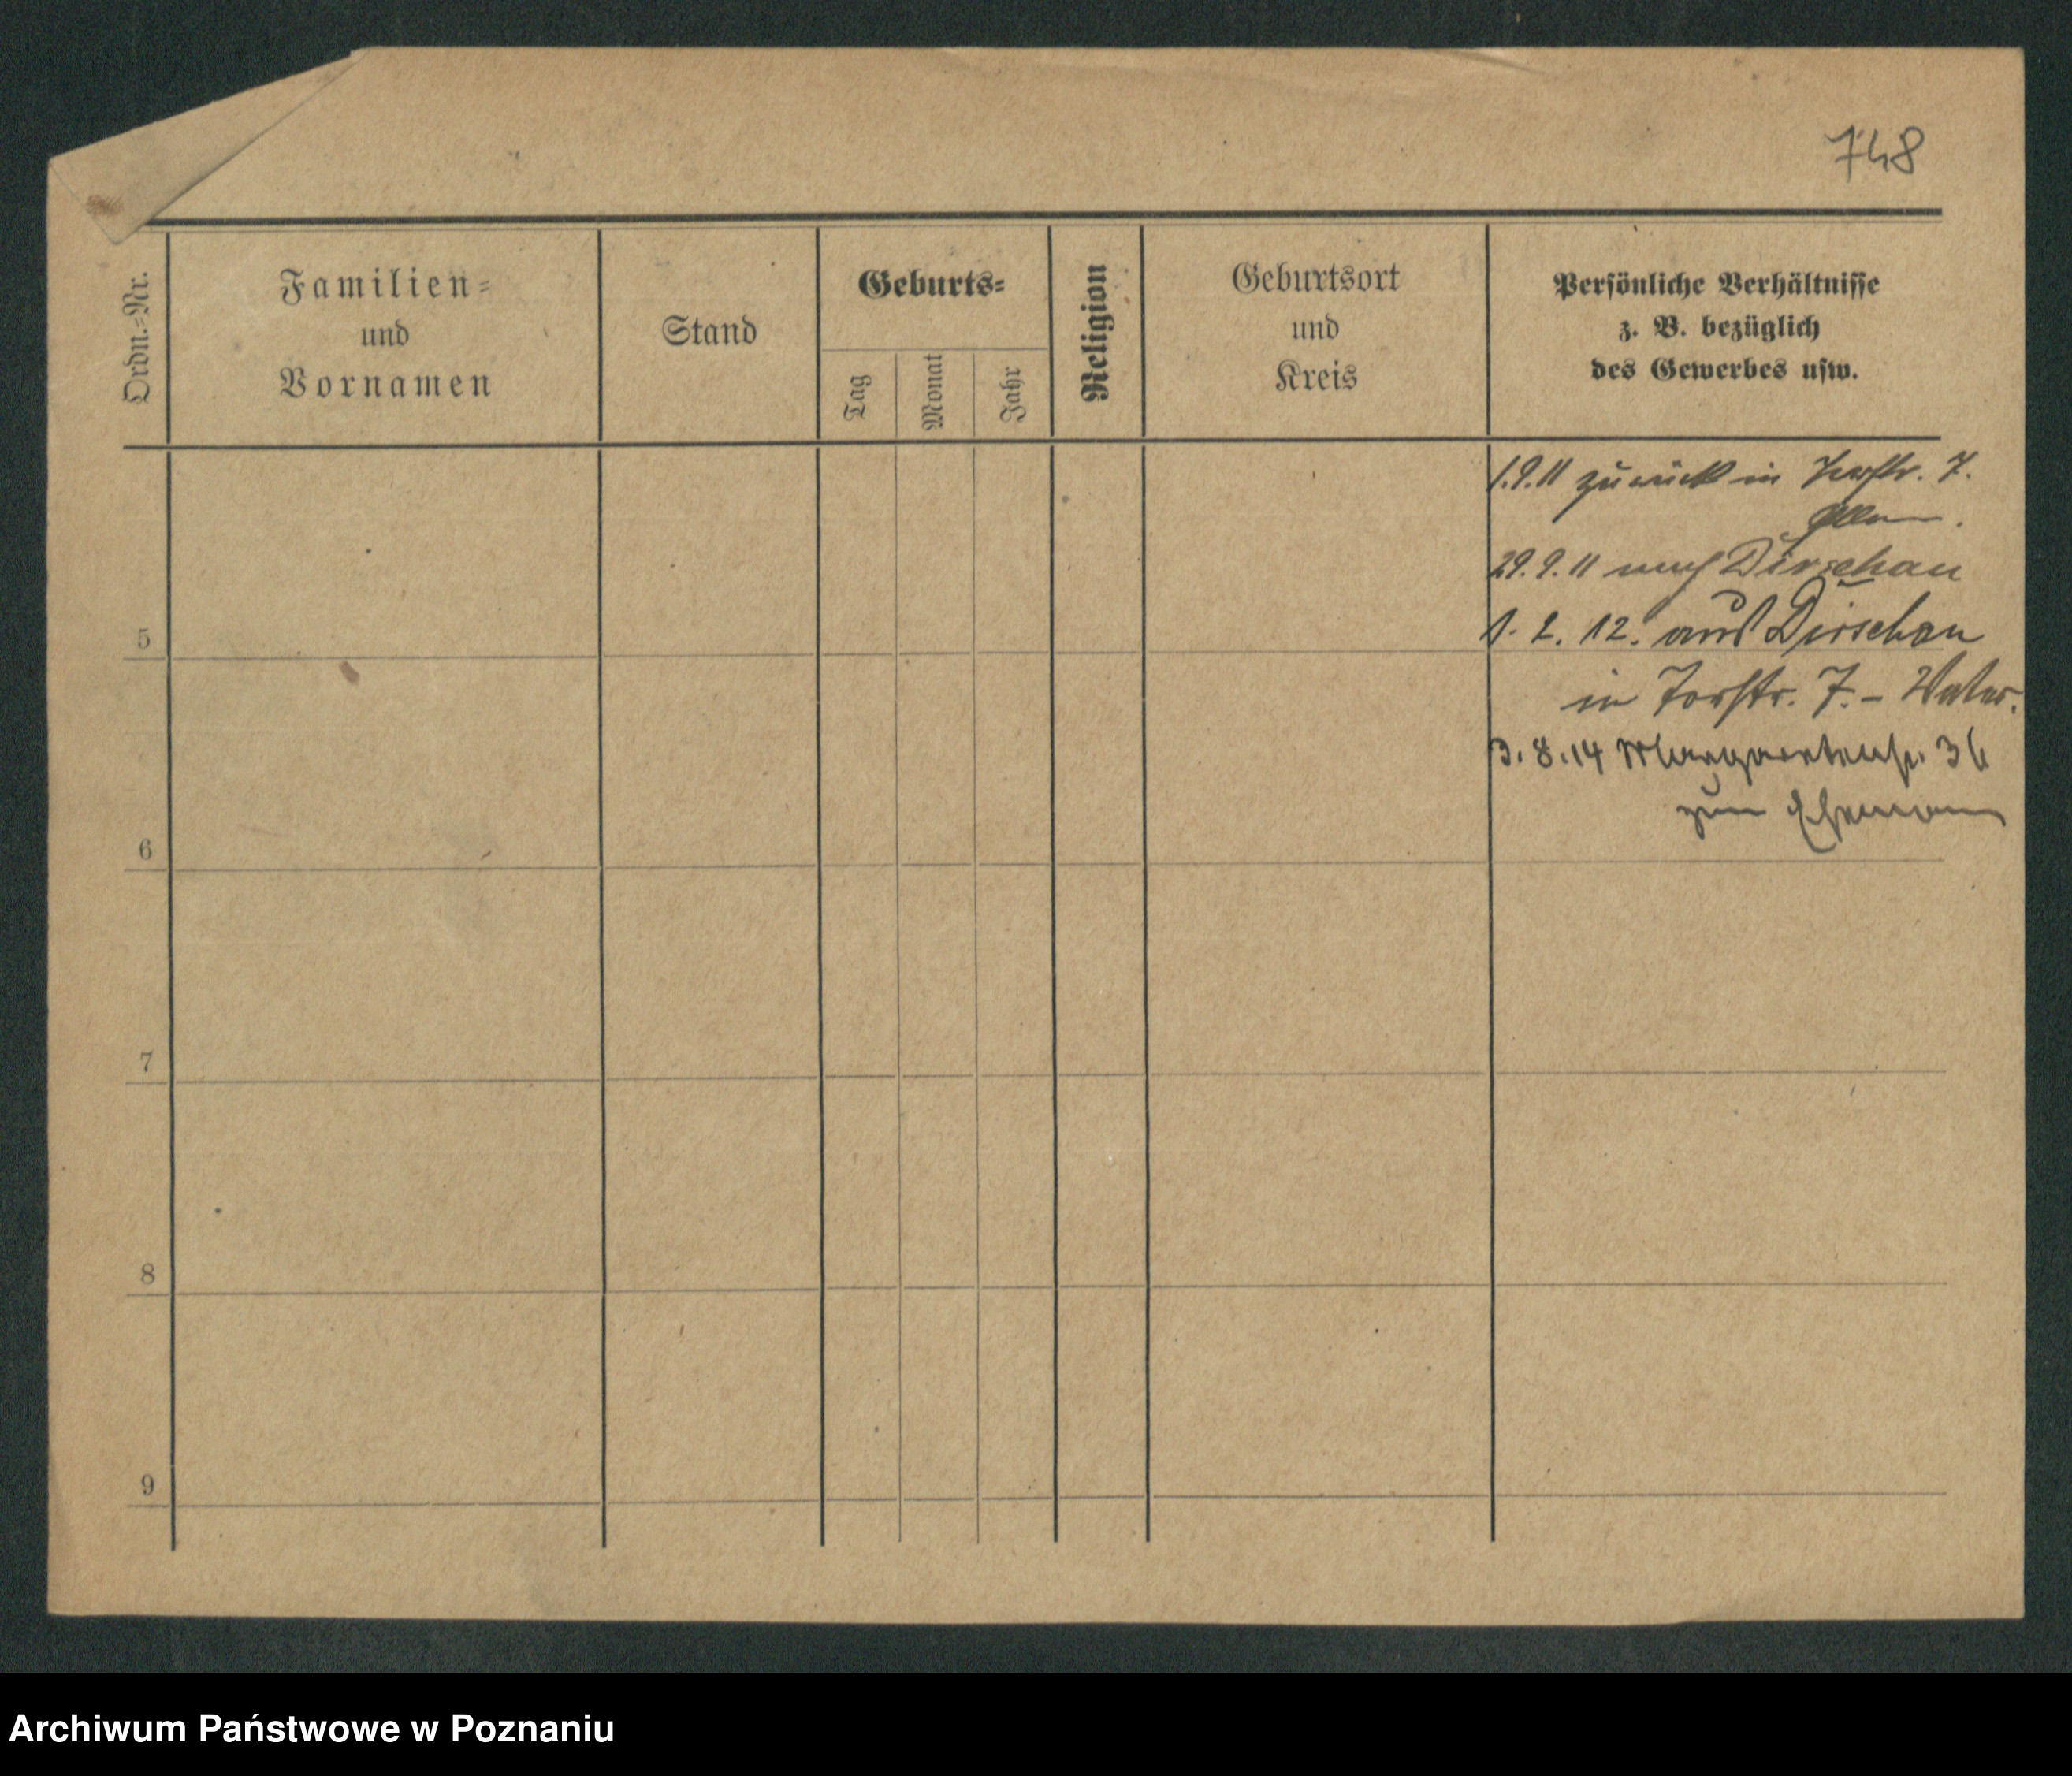 748
Ordn.=Nr.
Familien=
und
Vornamen
Stand
Geburts=
Tag
Monat
Jahr
Religion
Geburtsort
und
Kreis
Persönliche Verhältnisse
z. B. bezüglich
des Gewerbes usw.
1.9.11 zurück in Torstr. 7.
29.9.11 nach Dirschau
5
1. 2. 12. aus Dirschau
in Torstr. 7. – Vater.
3.8.14 Margaretenstr. 36
zum Ehemann
6
7
8
9
Archiwum Państwowe w Poznaniu